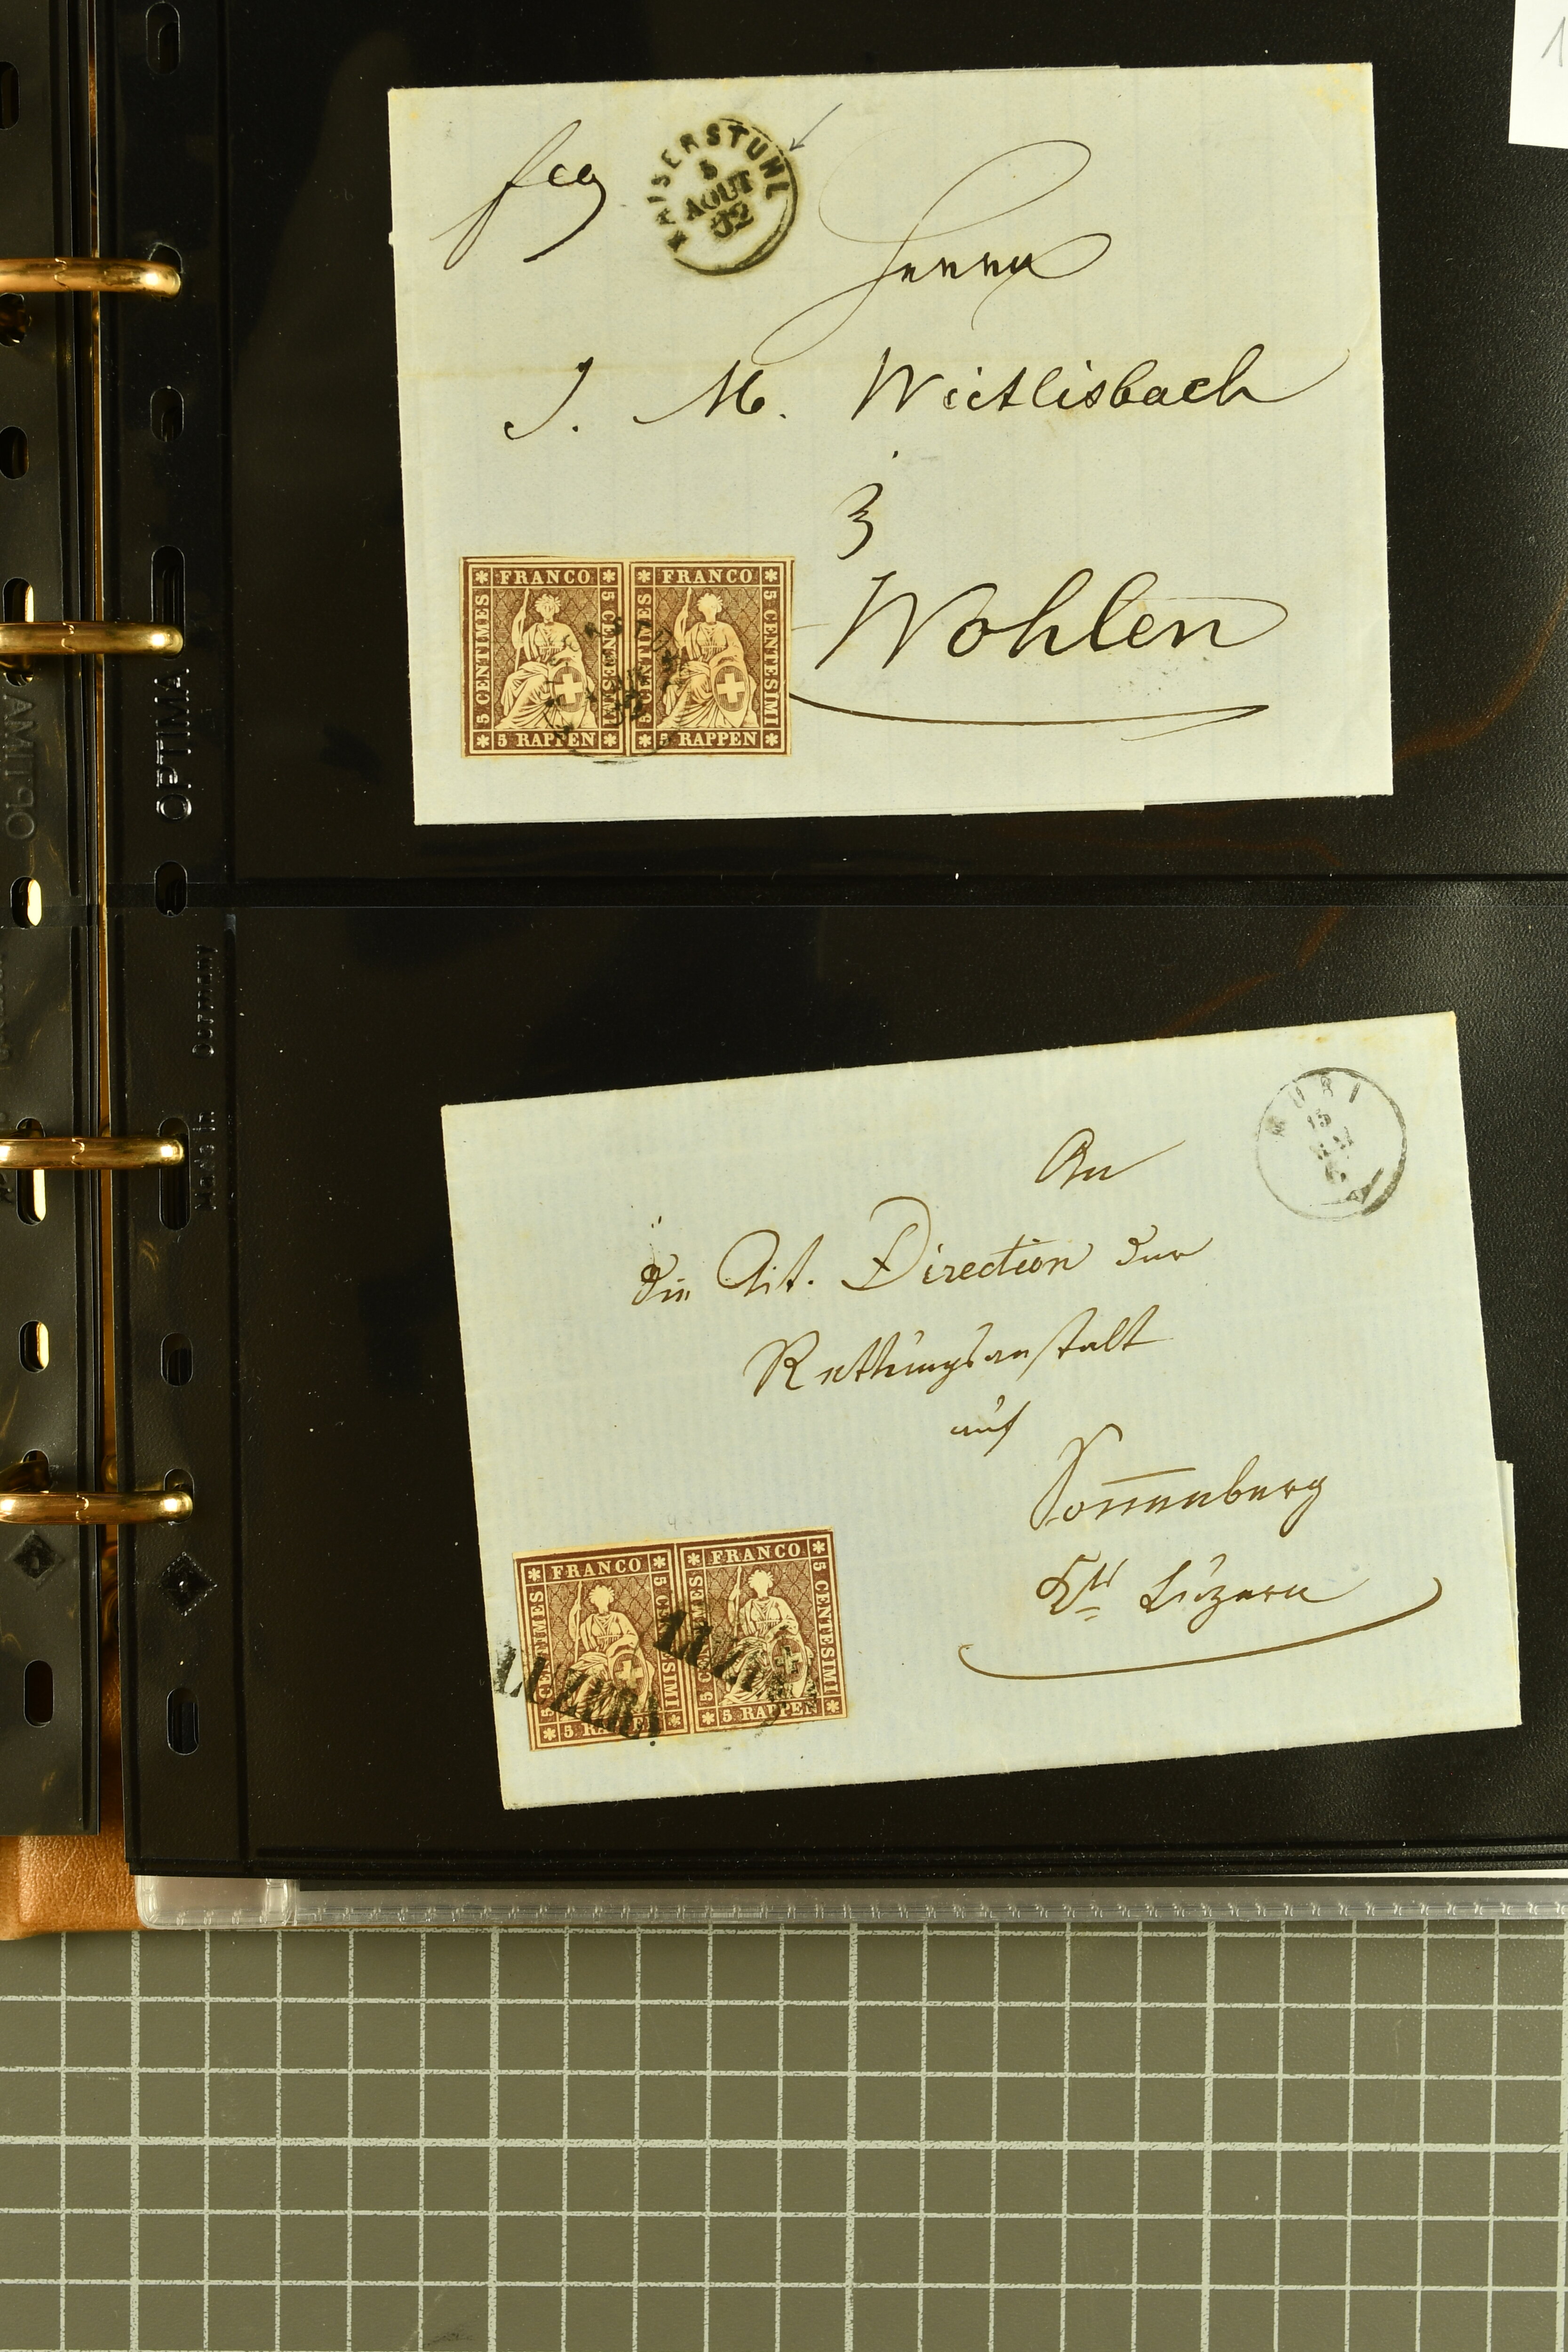 1
fco
KAISERSTUHL
5
AOUT
Herrn
J. M. Wietlisbach
3
Wohlen
FRANCO
5 CENTIMES
5 CENTESIMI
5 RAPPEN
FRANCO
5 CENTIMES
5 CENTESIMI
5 RAPPEN
OPTIMA
Made in Germany
MURI
15
An
die Tit. Direction der
Rettungsanstalt
auf
Sonnenberg
Kt. Luzern
FRANCO
5 CENTIMES
5 CENTESIMI
5 RAPPEN
FRANCO
5 CENTIMES
5 CENTESIMI
5 RAPPEN
LUZERN
LUZERN